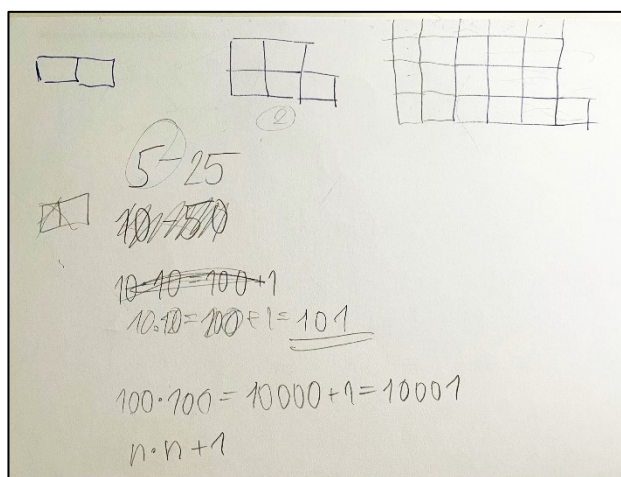 2
5-25
10·10=100+1
10·10=100+1=101
100·100=10000+1=10001
n·n+1